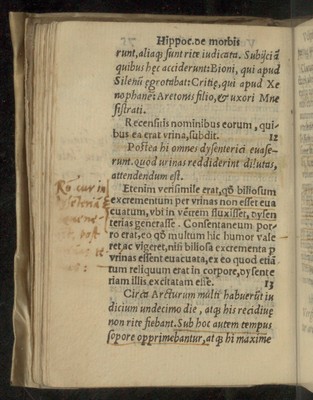 Hippoc. de morbis
runt, aliaq; sunt rite iudicata. Subijciā
quibus hęc acciderunt: Bioni, qui apud
Silenū ęgrotabat: Critię, qui apud Xe
nophanē: Aretonis filio, & uxori Mne
sistrati.
Recensitis nominibus eorum, qui-
bus ea erat vrina, subdit. 12
Postea hi omnes dysenterici euase-
runt. quod urinas reddiderint dilutas,
attendendum est.
Etenim verisimile erat, qđ biliosum
excrementum per vrinas non esset eua
cuatum, vbi in vētrem fluxisset, dysen
terias generasse. Consentaneum por-
ro erat, eo qđ multum hic humor vale
ret, ac vigeret, nisi biliosa excremēta p
vrinas essent euacuata, ex eo quod etiā
tum reliquum erat in corpore, dysente
riam illis excitatam esse. 13
Circa Arcturum multi habuerūt iu
dicium undecimo die, atq; his recidiuę
non rite fiebant. Sub hoc autem tempus
sopore opprimebantur, atq; hi maxime